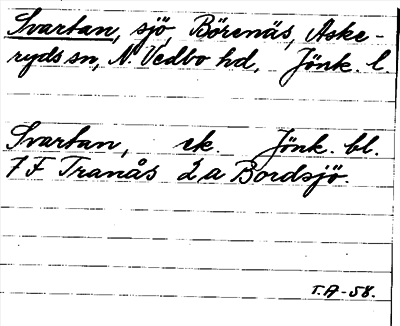 Svartan, sjö, Börenäs, Aske-
ryds sn, N. Vedbo hd, Jönk. l.
Svartan, ek. Jönk. bl.
7 F Tranås 2 a Bordsjö
T.A-58.